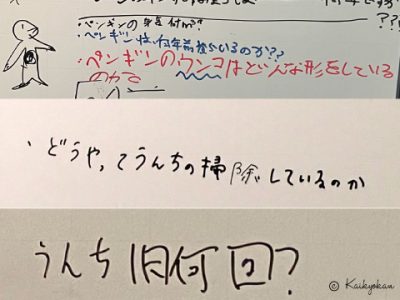 ・ペンギンの
・ペンギンは、何年前からいるのか???
・ペンギンのウンコはどんな形をしている
のかで
・どうやってうんちの掃除しているのか
うんち1日何回?
© Kaikyokan